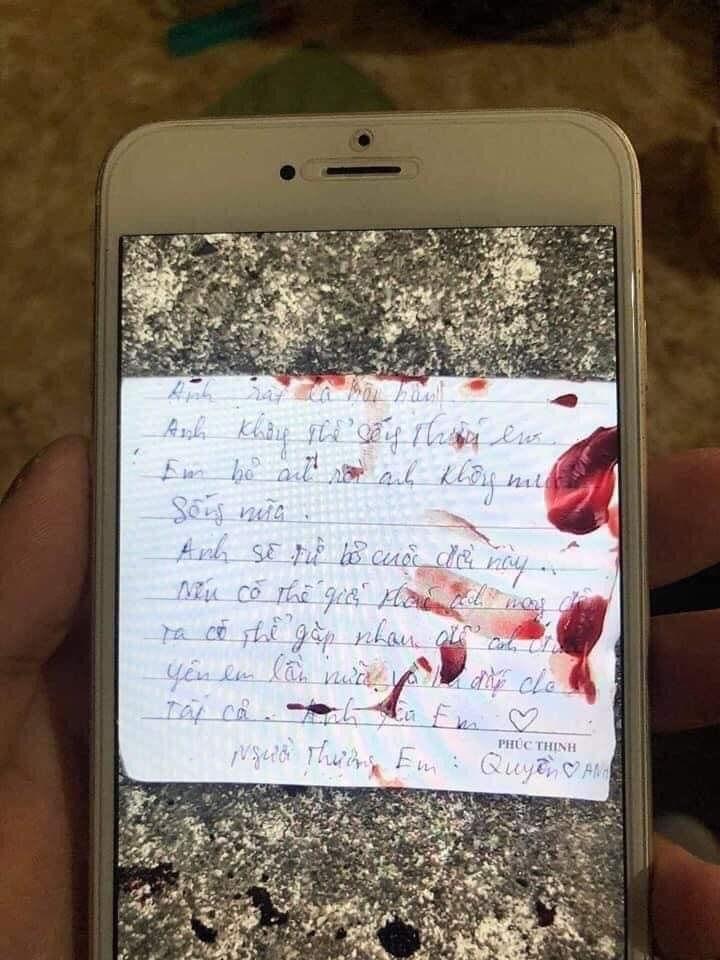 Anh rất là hối hận
Anh không thể sống thiếu em.
Em bỏ anh rồi anh không
sống nữa.
Anh sẽ từ bỏ cuộc đời này.
Nếu có thế giới khác anh mong
ta có thể gặp nhau để anh
yêu em lần nữa. và bù đắp cho
tất cả. Anh yêu Em ♡
PHÚC THỊNH
Người thương Em: Quyền ♡ ANH